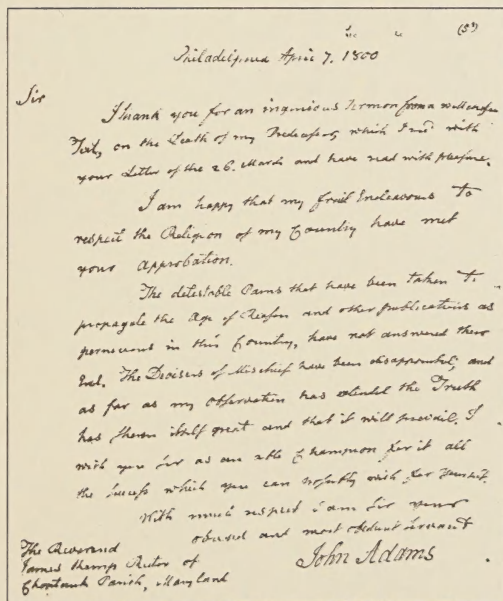 (5)
Philadelphia April 7. 1800
Sir
I thank you for an ingenious Sermon from a well chosen
Text, on the Death of my Predecessor, which I recd with
your Letter of the 26. March and have read with pleasure.
I am happy that my frail Endeavours to
respect the Religion of my Country have met
your Approbation.
The detestable Pains that have been taken to
propagate the Age of Reason and other publications as
pernicious in this Country, have not answered their
End. The Devisers of Mischief have been disappointed, and
as far as my observation has extended the Truth
has shewn itself great and that it will prevail. I
wish you Sir as an able Champion for it all
the success which you can possibly wish for yourself.
With much respect I am Sir your
obliged and most obedient servant
John Adams
The Reverend
James Kemp Rector of
Choptank Parish, Maryland